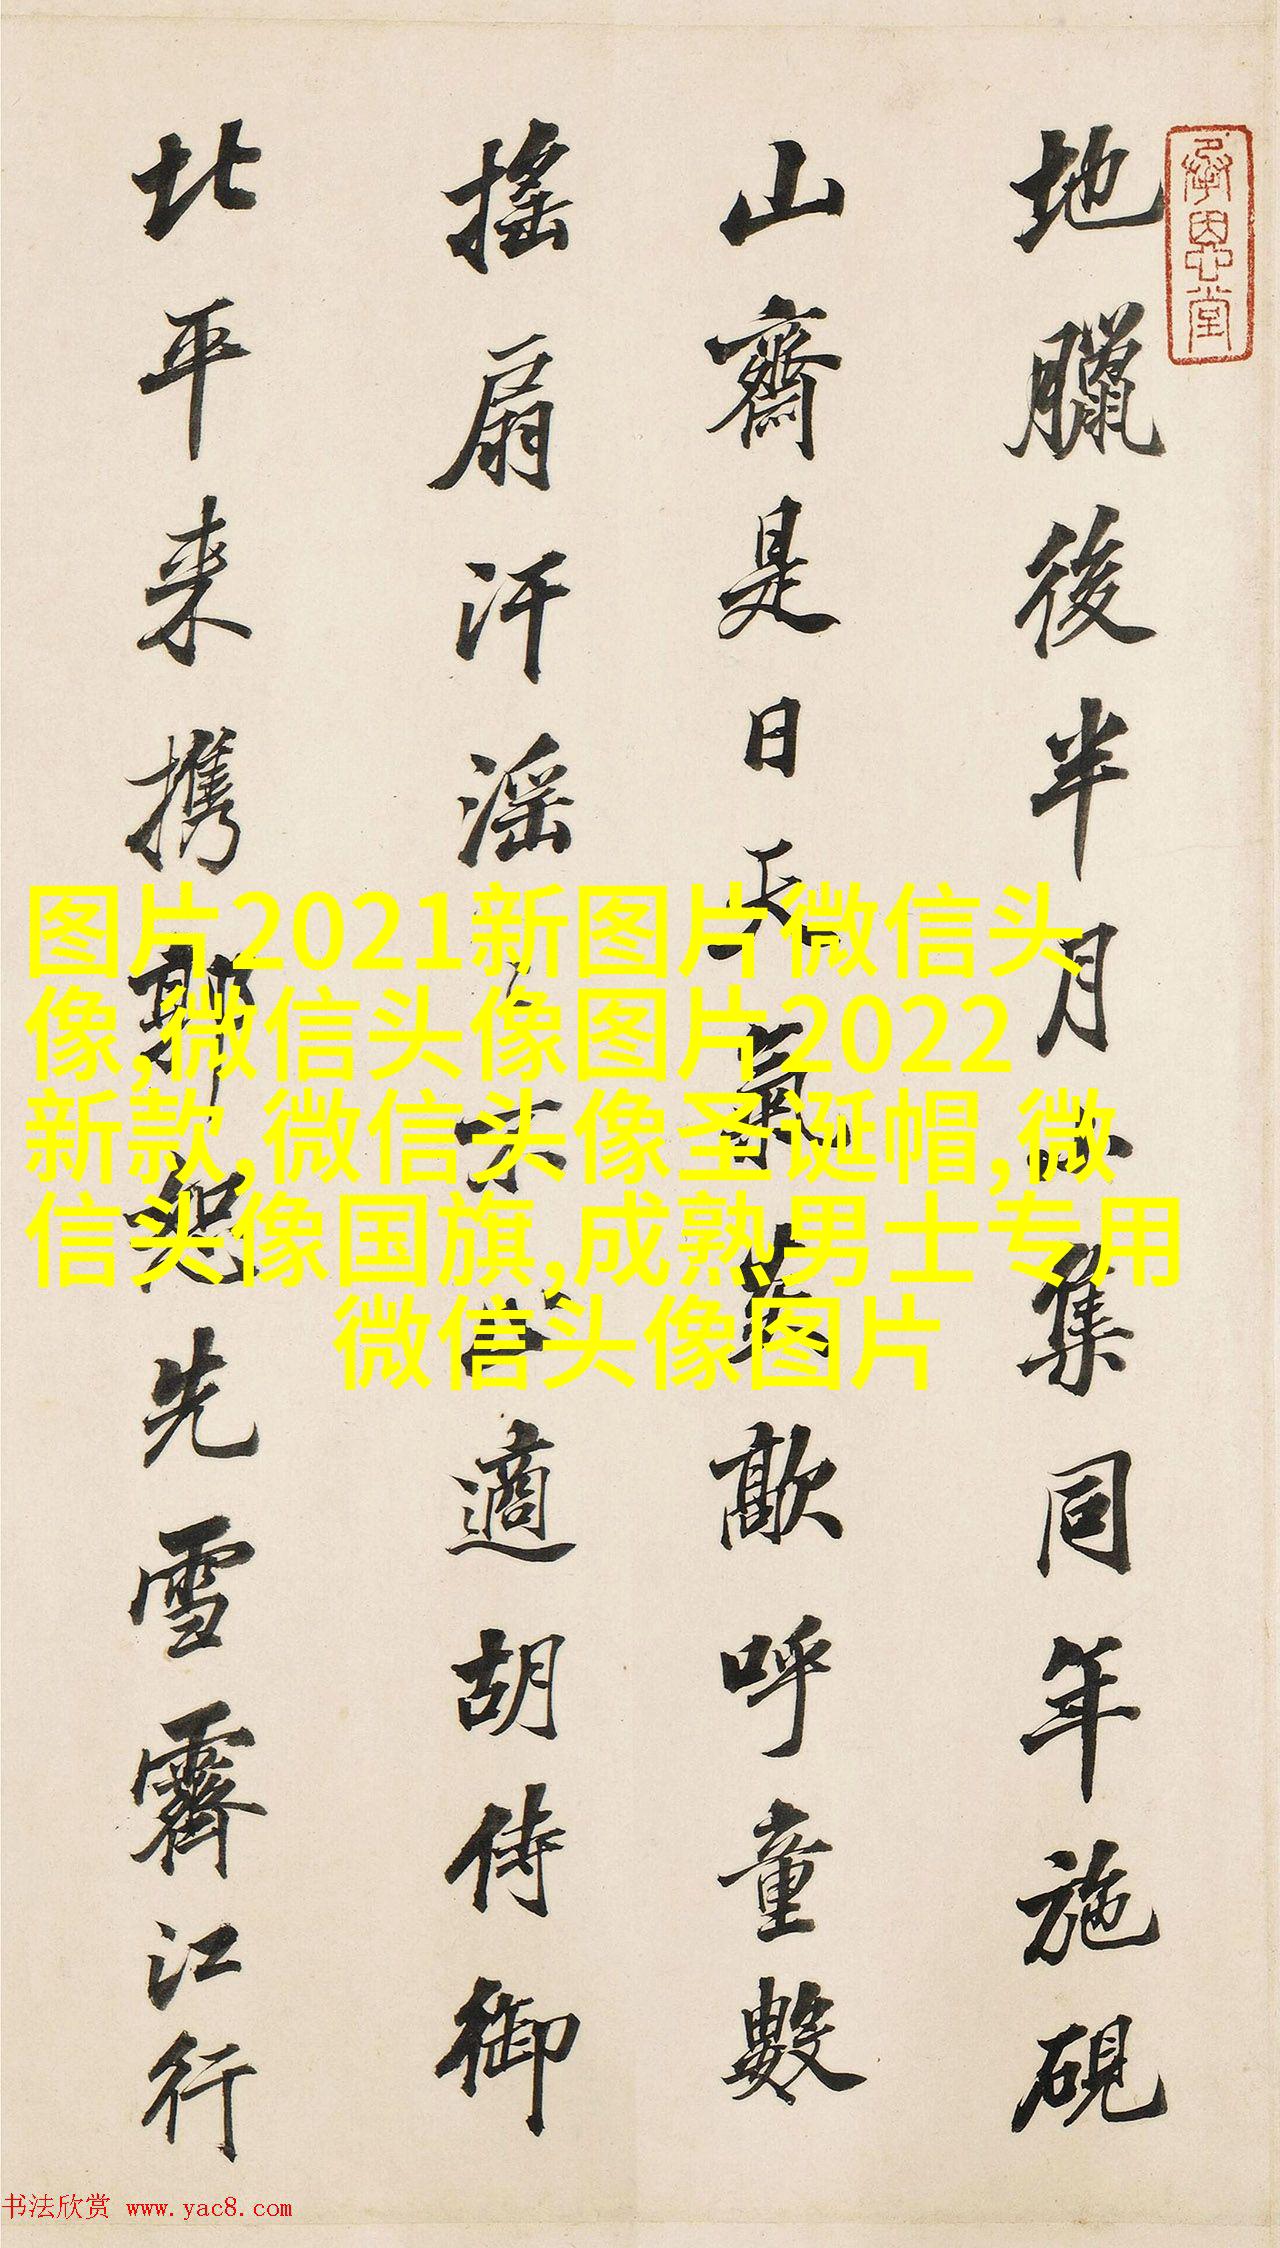 承恩堂
地臘後半月小集同年施硯
山齋是日天氣蒸歊呼童數
搖扇汗滛々不止適胡侍御
北平来携郭恕先雪霽江行
图片2021新图片微信头
像,微信头像图片2022
新款,微信头像圣诞帽,微
信头像国旗,成熟男士专用
微信头像图片
书法欣赏 www.yac8.com